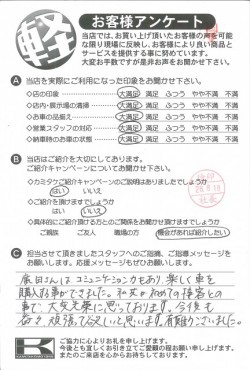 軽
お客様アンケート
当店では、お買い上げ頂いたお客様の声を可能
な限り現場に反映し、お客様により良い商品と
サービスを提供する事に努めています。
大変お手数ですが是非お声をお聞かせ下さい。
A 当店を実際にご利用になった印象をお聞かせ下さい。
◇店の印象 大満足 満足 ふつう やや不満 不満
◇店内・展示場の清掃 大満足 満足 ふつう やや不満 不満
◇お車の品揃え 大満足 満足 ふつう やや不満 不満
◇営業スタッフの対応 大満足 満足 ふつう やや不満 不満
◇納車時のお車の状態 大満足 満足 ふつう やや不満 不満
B 当店はご紹介を大切にしております。
ご紹介キャンペーンについてお聞かせ下さい。
◇カミタケご紹介キャンペーンのご説明はありましたでしょうか
はい いいえ
◇ご紹介を頂けますでしょうか
はい いいえ
◇具体的にご紹介頂ける方とのご関係をお聞かせ頂けますでしょうか
ご親族 ご友人 職場の方 機会があれば紹介したい
C 担当させて頂きましたスタッフへのご指摘、ご指導メッセージを
お願いします。応援メッセージもぜひお願いします。
さんはコミュニケーション力もあり楽しく車を
購入する事ができました。
事で大変光栄に思っております。今後も
頑張って下さいと思います。有難うございました。
ご協力に心よりお礼を申し上げます。
今後とも宜しくお引き立てご愛顧の程お願い申し上げます。
またのご来店を心からお待ちしております。